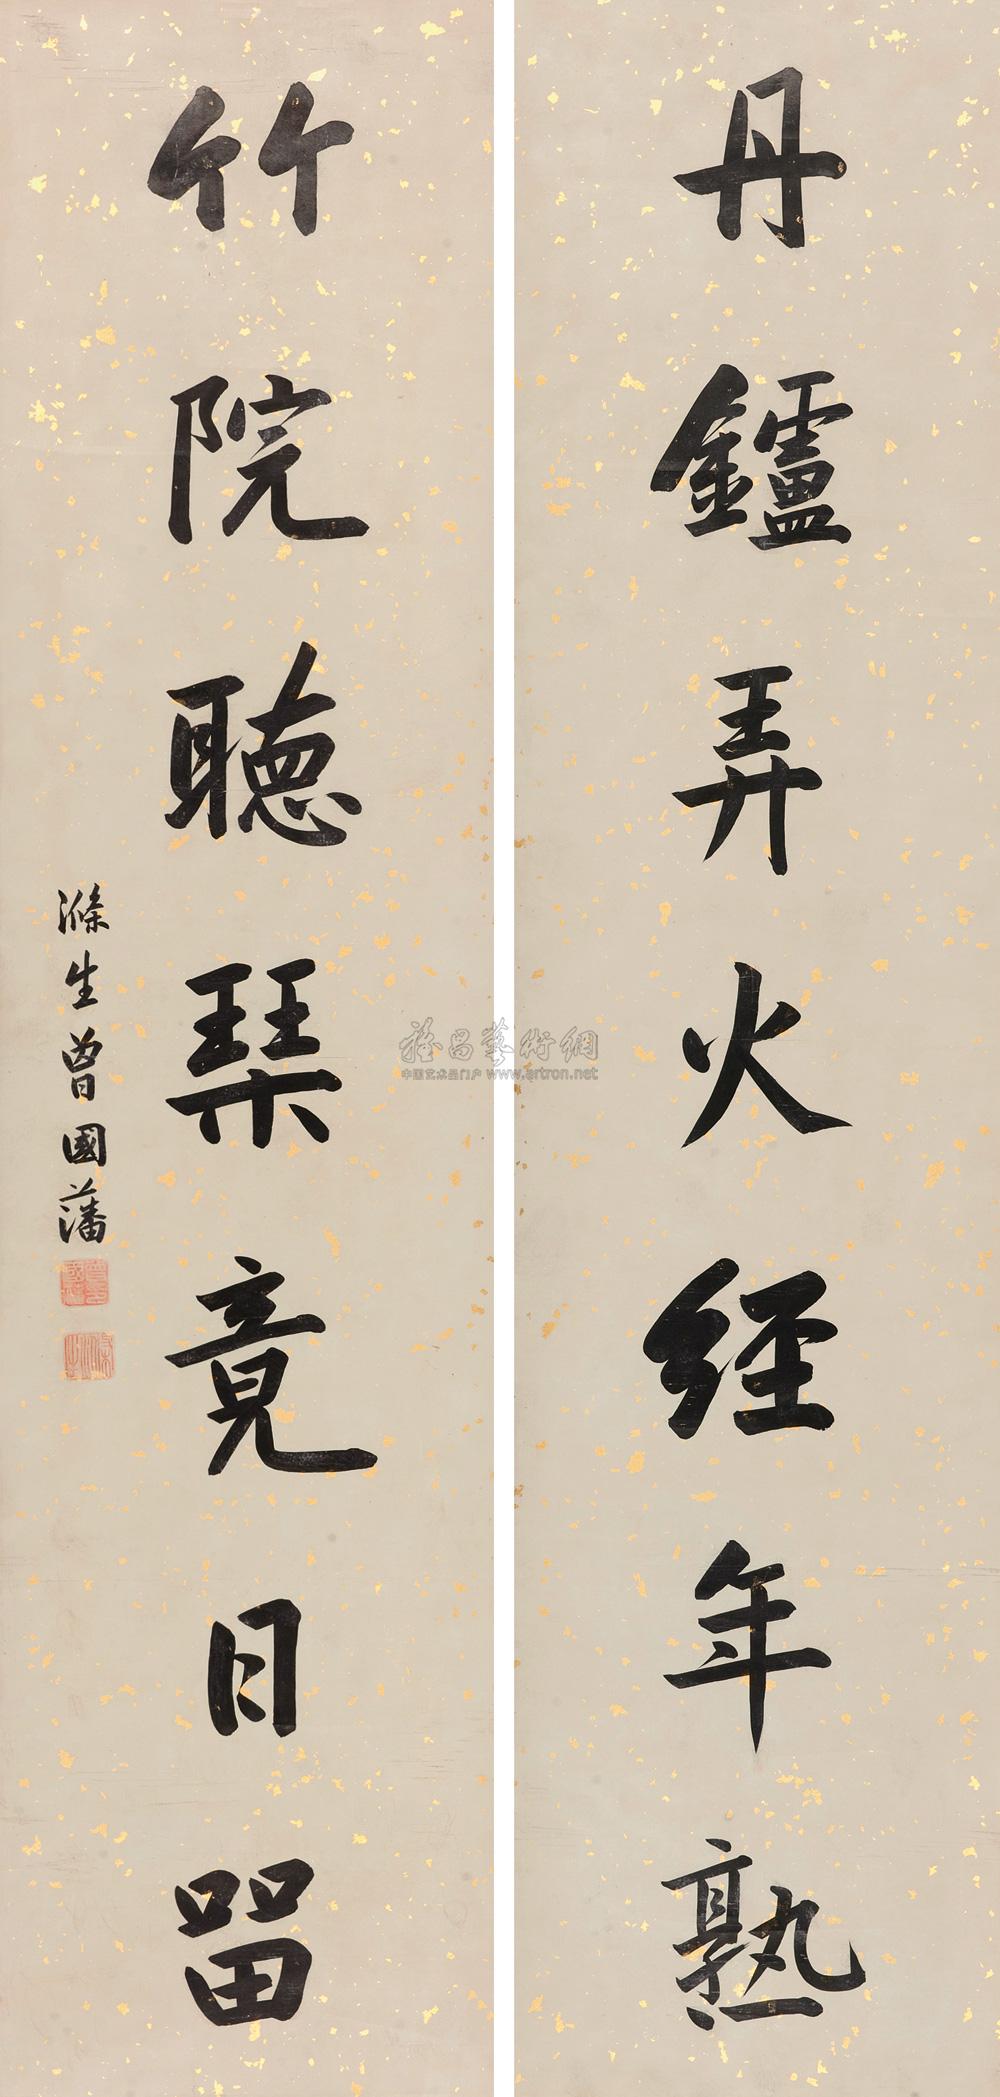 丹鑪弄火经年熟
竹院聴琹竟日留
滌生曾國藩
雅昌藝術網
中国艺术品门户 www.artron.net